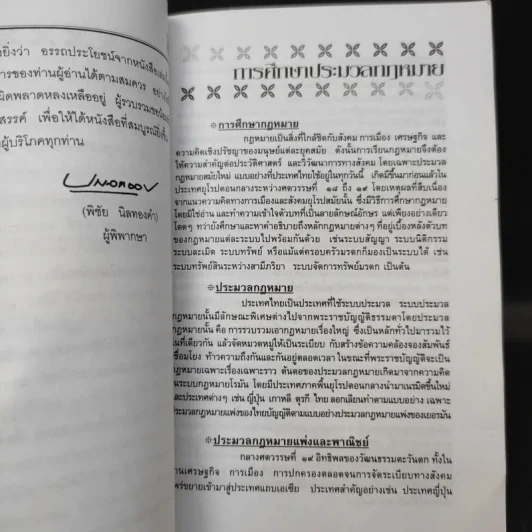 ยิ่งว่า อรรถประโยชน์จากหนังสือ
ารของท่านผู้อ่านได้ตามสมควร
ผิดพลาดหลงเหลืออยู่ ผู้รวบรวม
สรรค์ เพื่อให้ได้หนังสือที่สมบูรณ์ยิ่งขึ้น
ผู้บริโภคทุกท่าน
(พิชัย นิลทองคำ)
ผู้พิพากษา
การศึกษาประมวลกฎหมาย
การศึกษากฎหมาย
กฎหมายเป็นสิ่งที่ใกล้ชิดกับสังคม การเมือง เศรษฐกิจ และ
ความคิดเชิงปรัชญาของมนุษย์แต่ละยุคสมัย ดังนั้นการเรียนกฎหมายจึงต้อง
ให้ความสำคัญต่อประวัติศาสตร์ และวิวัฒนาการทางสังคม โดยเฉพาะประมวล
กฎหมายสมัยใหม่ แบบอย่างที่ประเทศไทยใช้อยู่ในทุกวันนี้ เกิดมีขึ้นมาก่อนแล้วใน
ประเทศยุโรปตอนกลางระหว่างศตวรรษที่ ๑๘ ถึง ๑๙ โดยเหตุผลที่สืบเนื่อง
จากแนวความคิดทางการเมืองและสังคมยุโรปสมัยนั้น ซึ่งมีวิธีการศึกษากฎหมาย
โดยมิใช่อ่าน และทำความเข้าใจตัวบทที่เป็นลายลักษณ์อักษร แต่เพียงอย่างเดียว
โดดๆ ทว่ายังศึกษาและหาคำอธิบายถึงหลักกฎหมายต่างๆ ที่อยู่เบื้องหลังตัวบท
ของกฎหมายแต่ละระบบไปพร้อมกันด้วย เช่นระบบสัญญา ระบบนิติกรรม
ระบบละเมิด ระบบทรัพย์ หรือแม้แต่ครอบครัวมรดกก็มองเป็นระบบได้ เช่น
ระบบทรัพย์สินระหว่างสามีภริยา ระบบจัดการทรัพย์มรดก เป็นต้น
ประมวลกฎหมาย
ประเทศไทยเป็นประเทศที่ใช้ระบบประมวล ระบบประมวล
กฎหมายนั้นมีลักษณะพิเศษต่างไปจากพระราชบัญญัติธรรมดาโดยประมวล
กฎหมายนั้น คือ การรวบรวมเอากฎหมายเรื่องใหญ่ ซึ่งเป็นหลักทั่วไปมารวมไว้
ในที่เดียวกัน แล้วจัดหมวดหมู่ให้เป็นระเบียบ กับสร้างข้อความคล้องจองสัมพันธ์
เชื่อมโยง ท้าวความถึงกันและกันอยู่ตลอดเวลา ในขณะที่พระราชบัญญัติจะเป็น
กฎหมายเฉพาะเรื่องเฉพาะราว ต้นตอของประมวลกฎหมายเกิดมาจากความคิด
ในระบบกฎหมายโรมัน โดยมีประเทศภาคพื้นยุโรปตอนกลางนำมาเนรมิตขึ้นใหม่
และประเทศต่างๆ เช่น ญี่ปุ่น เกาหลี ตุรกี ไทย ลอกเลียนทำตามแบบอย่าง เฉพาะ
ประมวลกฎหมายแพ่งของไทยบัญญัติตามแบบอย่างประมวลกฎหมายแพ่งของเยอรมัน
ประมวลกฎหมายแพ่งและพาณิชย์
กลางศตวรรษที่ ๑๙ อิทธิพลของวัฒนธรรมตะวันตก ทั้งใน
านเศรษฐกิจ การเมือง การปกครองตลอดจนการจัดระเบียบทางสังคม
พร่ขยายเข้ามาสู่ประเทศแถบเอเชีย ประเทศสำคัญอย่างเช่น ประเทศญี่ปุ่น